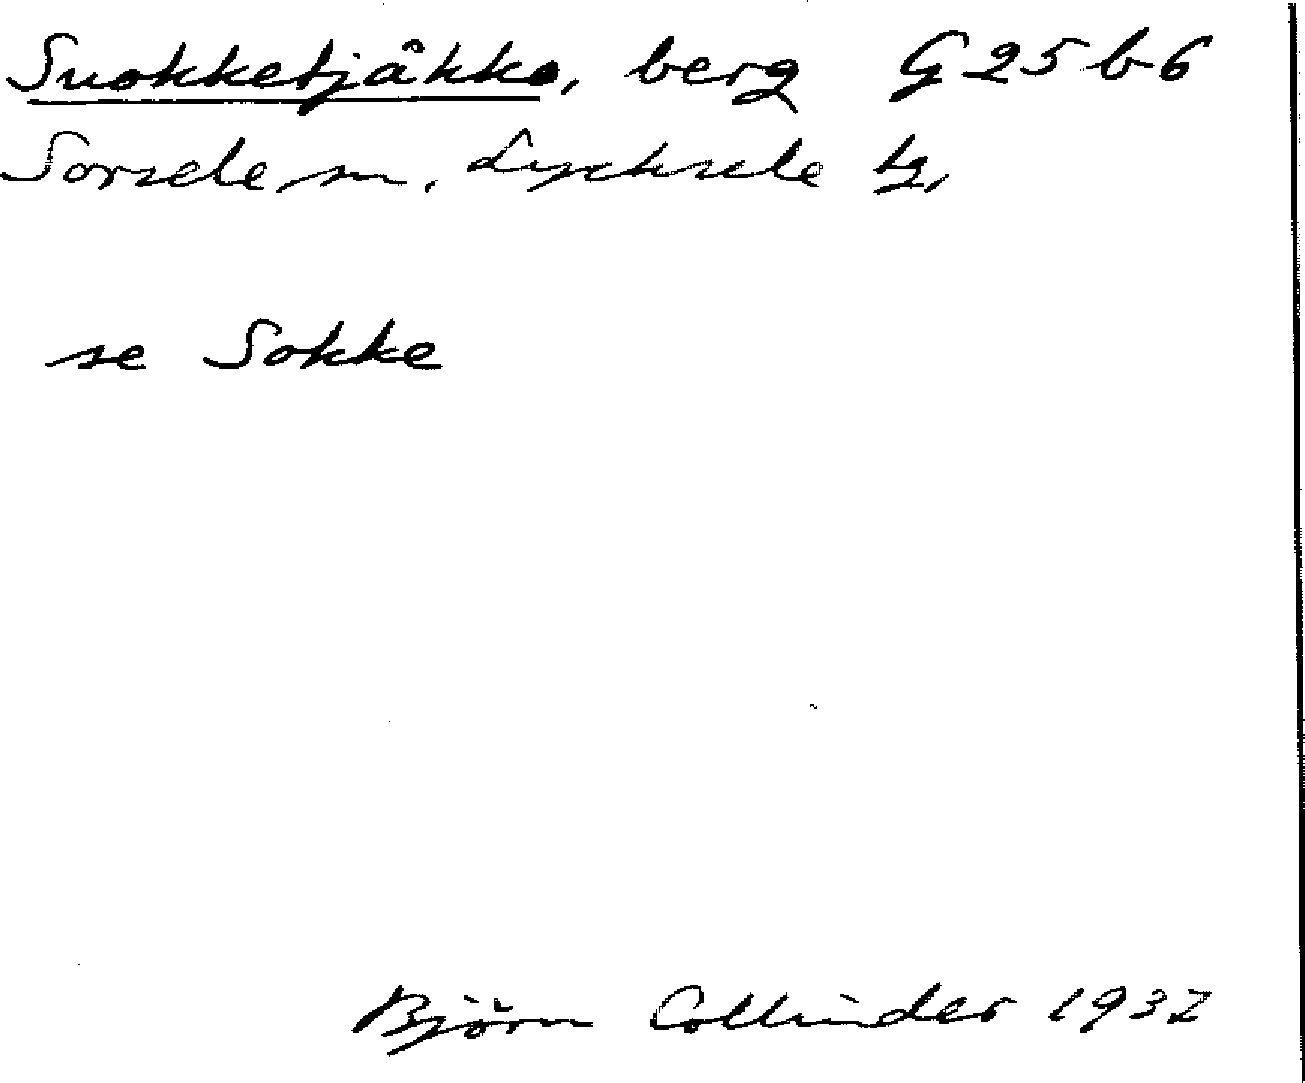 Suokketjåkko, berg G 25 b 6
Sorsele sn. Lycksele tg,
se Sokke
Björn Collinder 1932